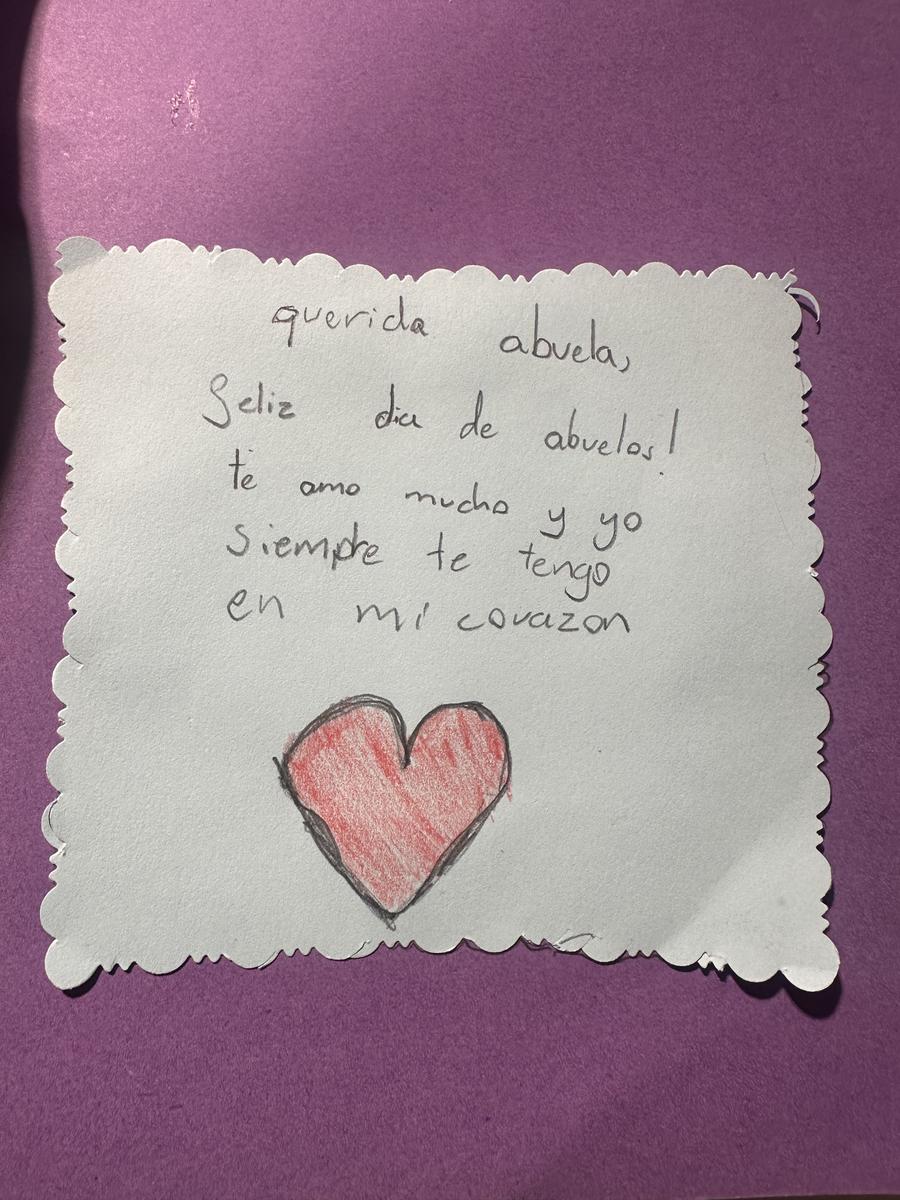 querida abuela,
feliz dia de abuelos!
te amo mucho y yo
siempre te tengo
en mi corazon